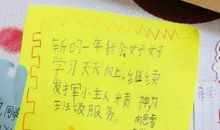 新的一年我会好好
学习天天向上。继续
发挥小主人精神为
班级服务。
向思雪